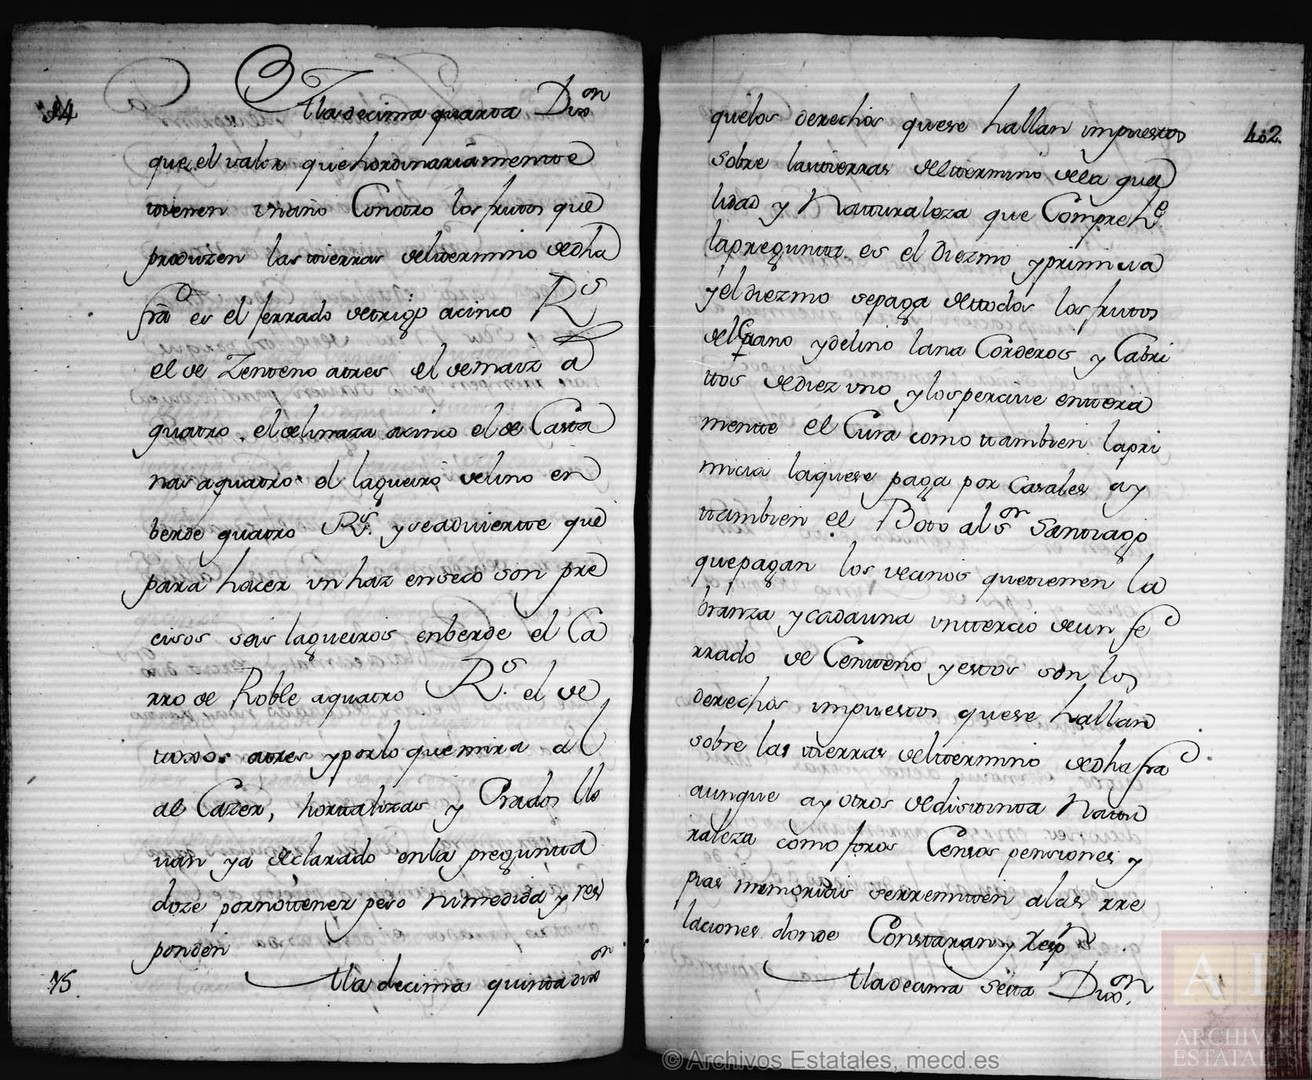 14
A la decima quarta Dixon
que, el valor que hordinariamentte
ttienen un año Con otro los frutos que
produzen las ttierras del termino de dha
fra es el ferrado de trigo a cinco Rs
el de Zenteno a tres el de maiz a
quatro, el de linaza a cinco el de Casta
nas a quatro el lagueiro de lino en
berde quatro Rs. y se adviertte que
para hacer un haz en seco son pre
cisos seis lagueiros en berde el Ca
rro de Roble a quatro Rs. el de
toxos a tres y por lo que mira al
al Cazer, hortalizas y Prados lle
van ya declarado en la pregunta
doze por no ttener peso ni medida y res
ponden
15. A la decima quinta dixon
que los derechos que se hallan impuestos
402.
sobre las ttierras del ttermino de la qua
lidad y Natturaleza que Comprehe
la pregunta es el Diezmo y primicia
y el diezmo se paga de ttodos los fruttos
del grano y de lino lana Corderos y Cabri
ttos de diez uno y los percive entera
mentte el Cura como ttambien la pri
micia la que se paga por Casales ay
ttambien el Boto al Sn Santiago
que pagan los vecinos que ttienen la
branza y cada una un ttercio de un fe
rrado de Centteno y estos son los
derechos impuestos que se hallan
sobre las ttierras del ttermino de dha fra
aunque ay otros de distinta Nattu
raleza como foros Censos pensiones y
pias memorias se rremitten a las rre
laciones donde Constaran y Respn
A la decima sesta Dixon,
© Archivos Estatales, mecd.es
ARCHIVOS
ESTATALES